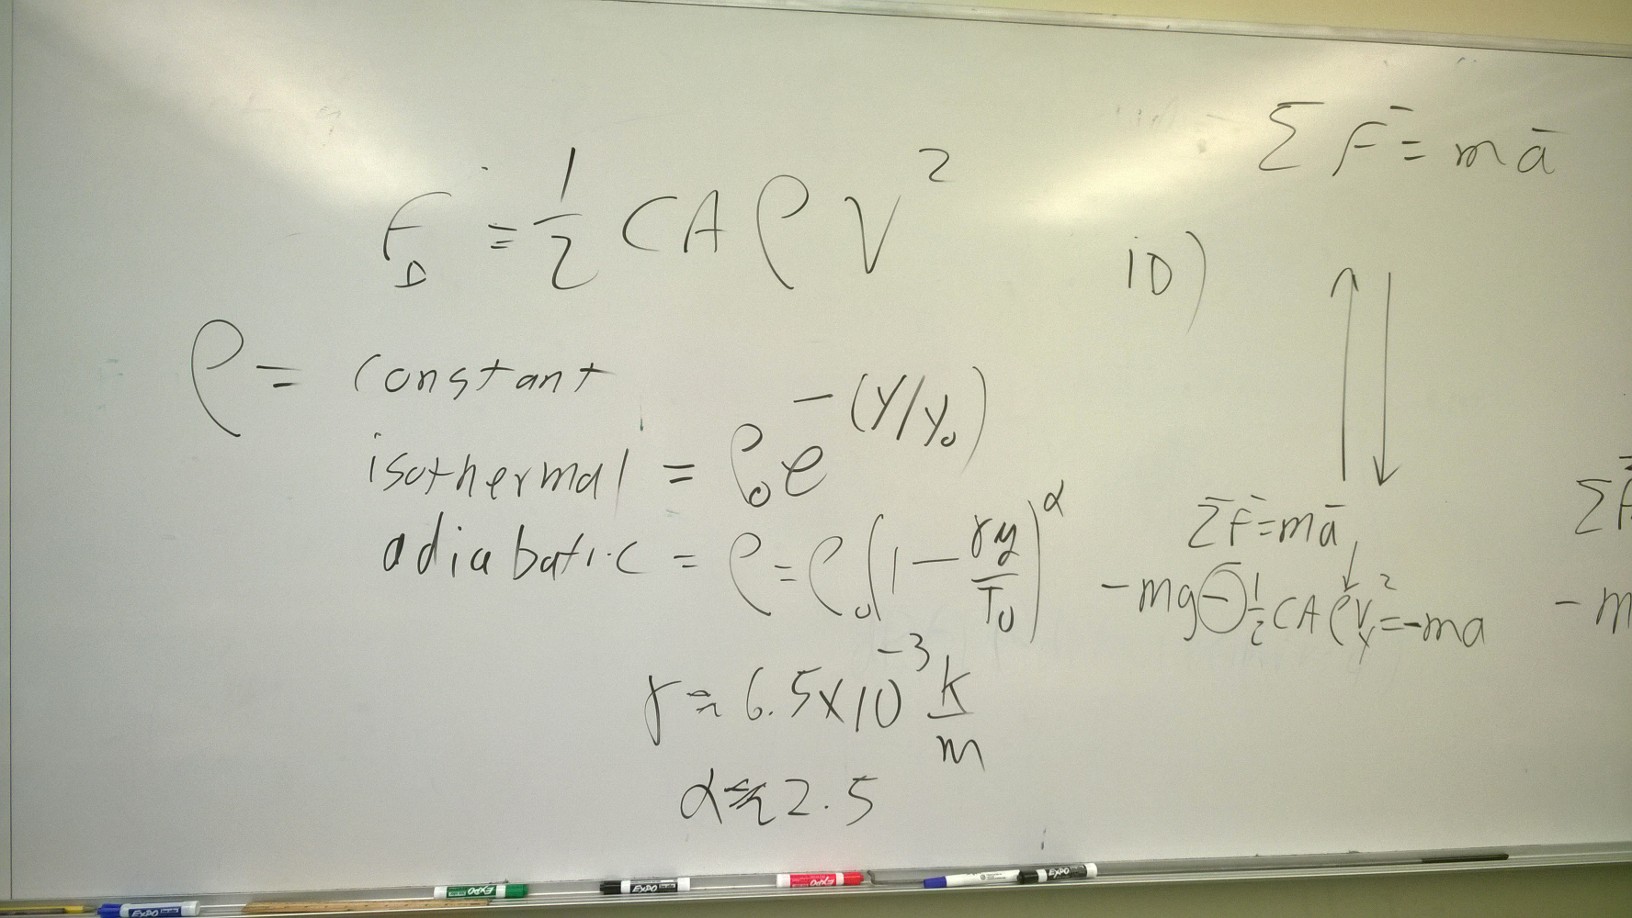 F_D = 1/2 CAρV²
ρ = constant
isothermal = ρ₀e^-(y/y₀)
adiabatic = ρ = ρ₀(1 - γy/T₀)^α
γ ≈ 6.5x10^-3 k/m
α ≈ 2.5
ΣF̄ = mā
1D)
ΣF̄ = mā
-mg - 1/2 CAρV_y² = -ma
ΣF
- m
EXPO
EXPO
EXPO
EXPO
EXPO